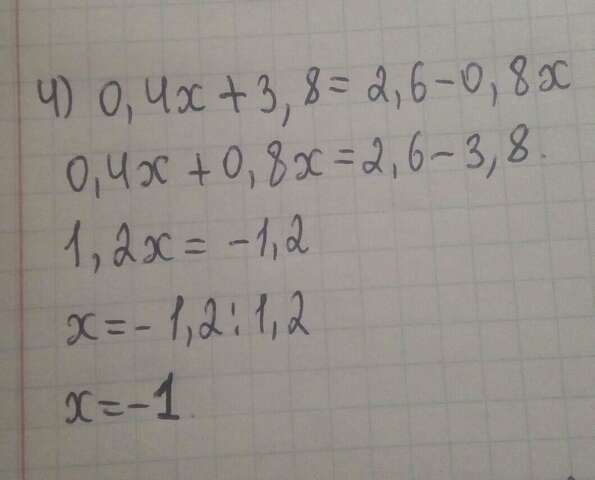 4) 0,4x + 3,8 = 2,6 - 0,8x
0,4x + 0,8x = 2,6 - 3,8.
1,2x = -1,2
x = -1,2 : 1,2
x = -1.